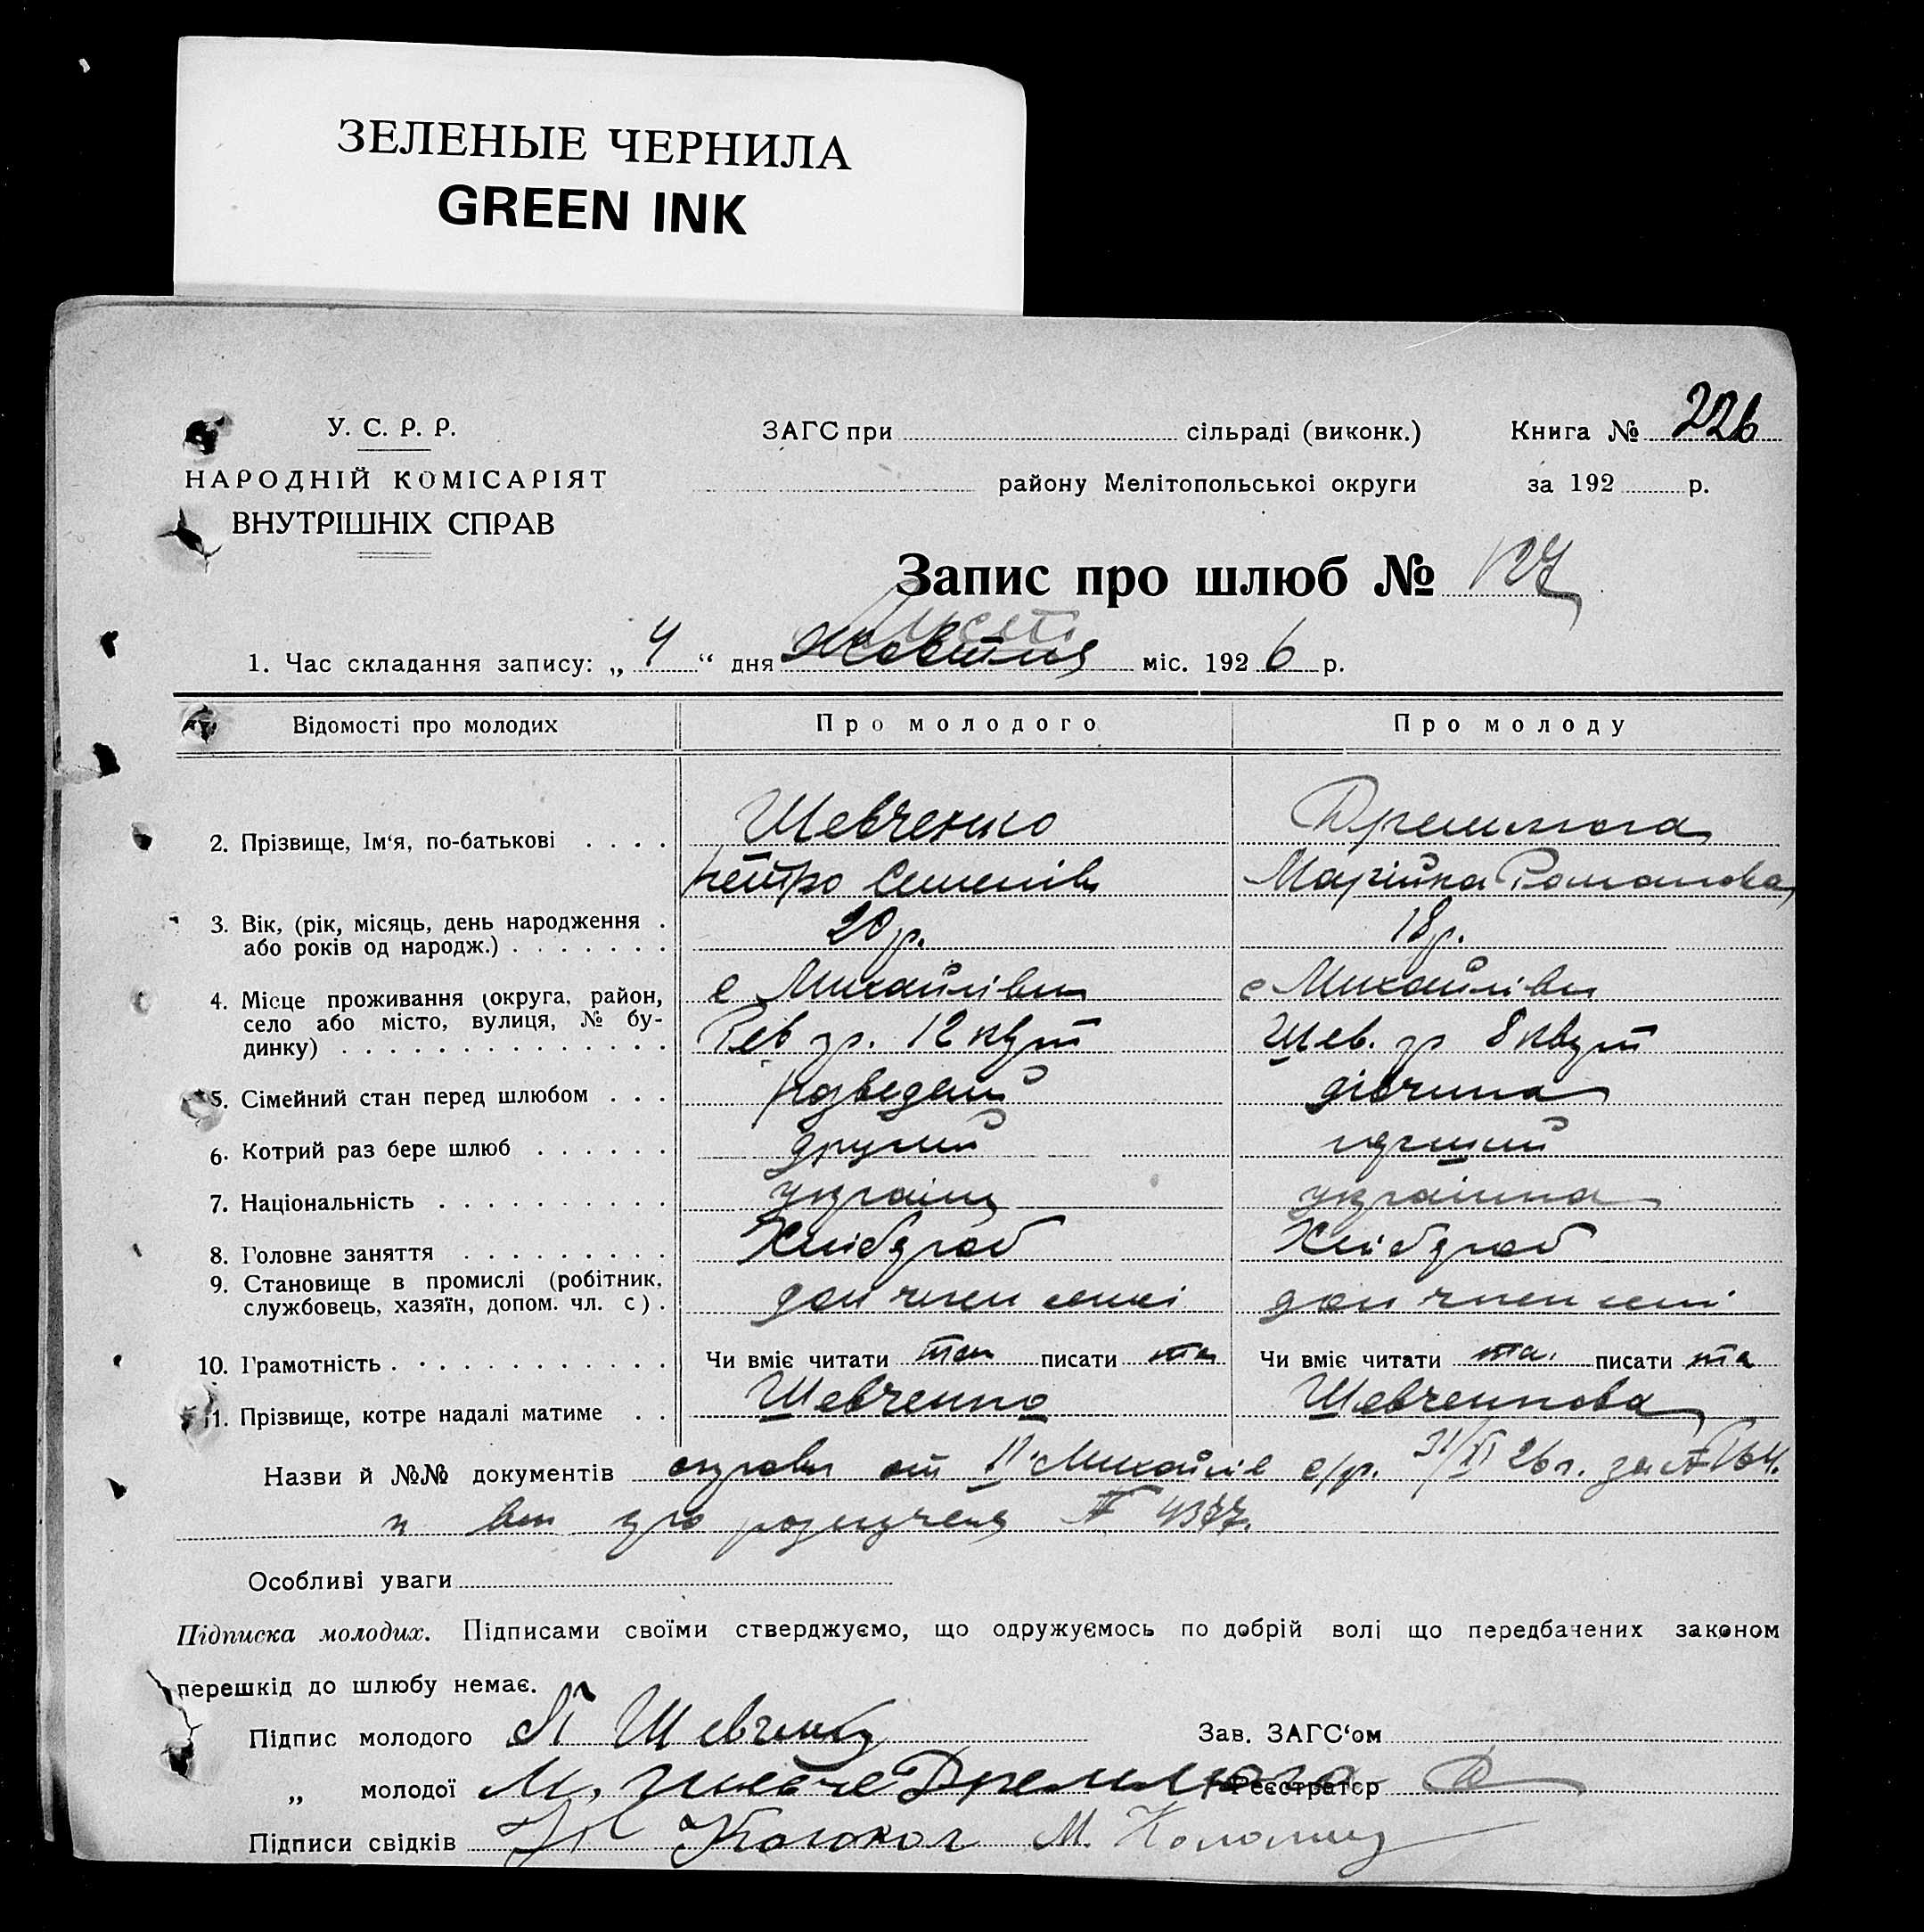 ЗЕЛЕНЫЕ ЧЕРНИЛА
GREEN INK
У. С. Р. Р.
НАРОДНІЙ КОМІСАРІЯТ
ВНУТРІШНІХ СПРАВ
ЗАГС при сільраді (виконк.)
району Мелітопольської округи
Книга № 226
за 192 р.
Запис про шлюб №
1. Час складання запису: „ 4 “ дня Жовтня міс. 192 6 р.
Відомості про молодих Про молодого Про молоду
2. Прізвище, Ім‘я, по-батькові Шевченко Дремлюга
Петро Семенів Марійка Романова
3. Вік, (рік, місяць, день народження 20 р. 18 р.
або років од народж.)
4. Місце проживання (округа, район, с Михайлівка с Михайлівка
село або місто, вулиця, № бу- Рев гр. 12 кут Шев. гр 8 кут
динку)
5. Сімейний стан перед шлюбом розведений дівчина
6. Котрий раз бере шлюб другий перший
7. Національність українец українка
8. Головне заняття Хлібороб Хлібороб
9. Становище в промислі (робітник, доп член семі доп член семі
службовець, хазяїн, допом. чл. с)
10. Грамотність Чи вміє читати так писати так Чи вміє читати так писати так
11. Прізвище, котре надалі матиме Шевченко Шевченкова
Назви й №№ документів от Михайлів с/р. 26 р. за №
и про розлучення № 4377.
Особливі уваги
Підписка молодих. Підписами своїми стверджуємо, що одружуємось по добрій волі що передбачених законом
перешкід до шлюбу немає.
Підпис молодого П Шевченко Зав. ЗАГС‘ом
„ молодої М. Шевче Дремлюга Реєстратор
Підписи свідків М. Коломиец